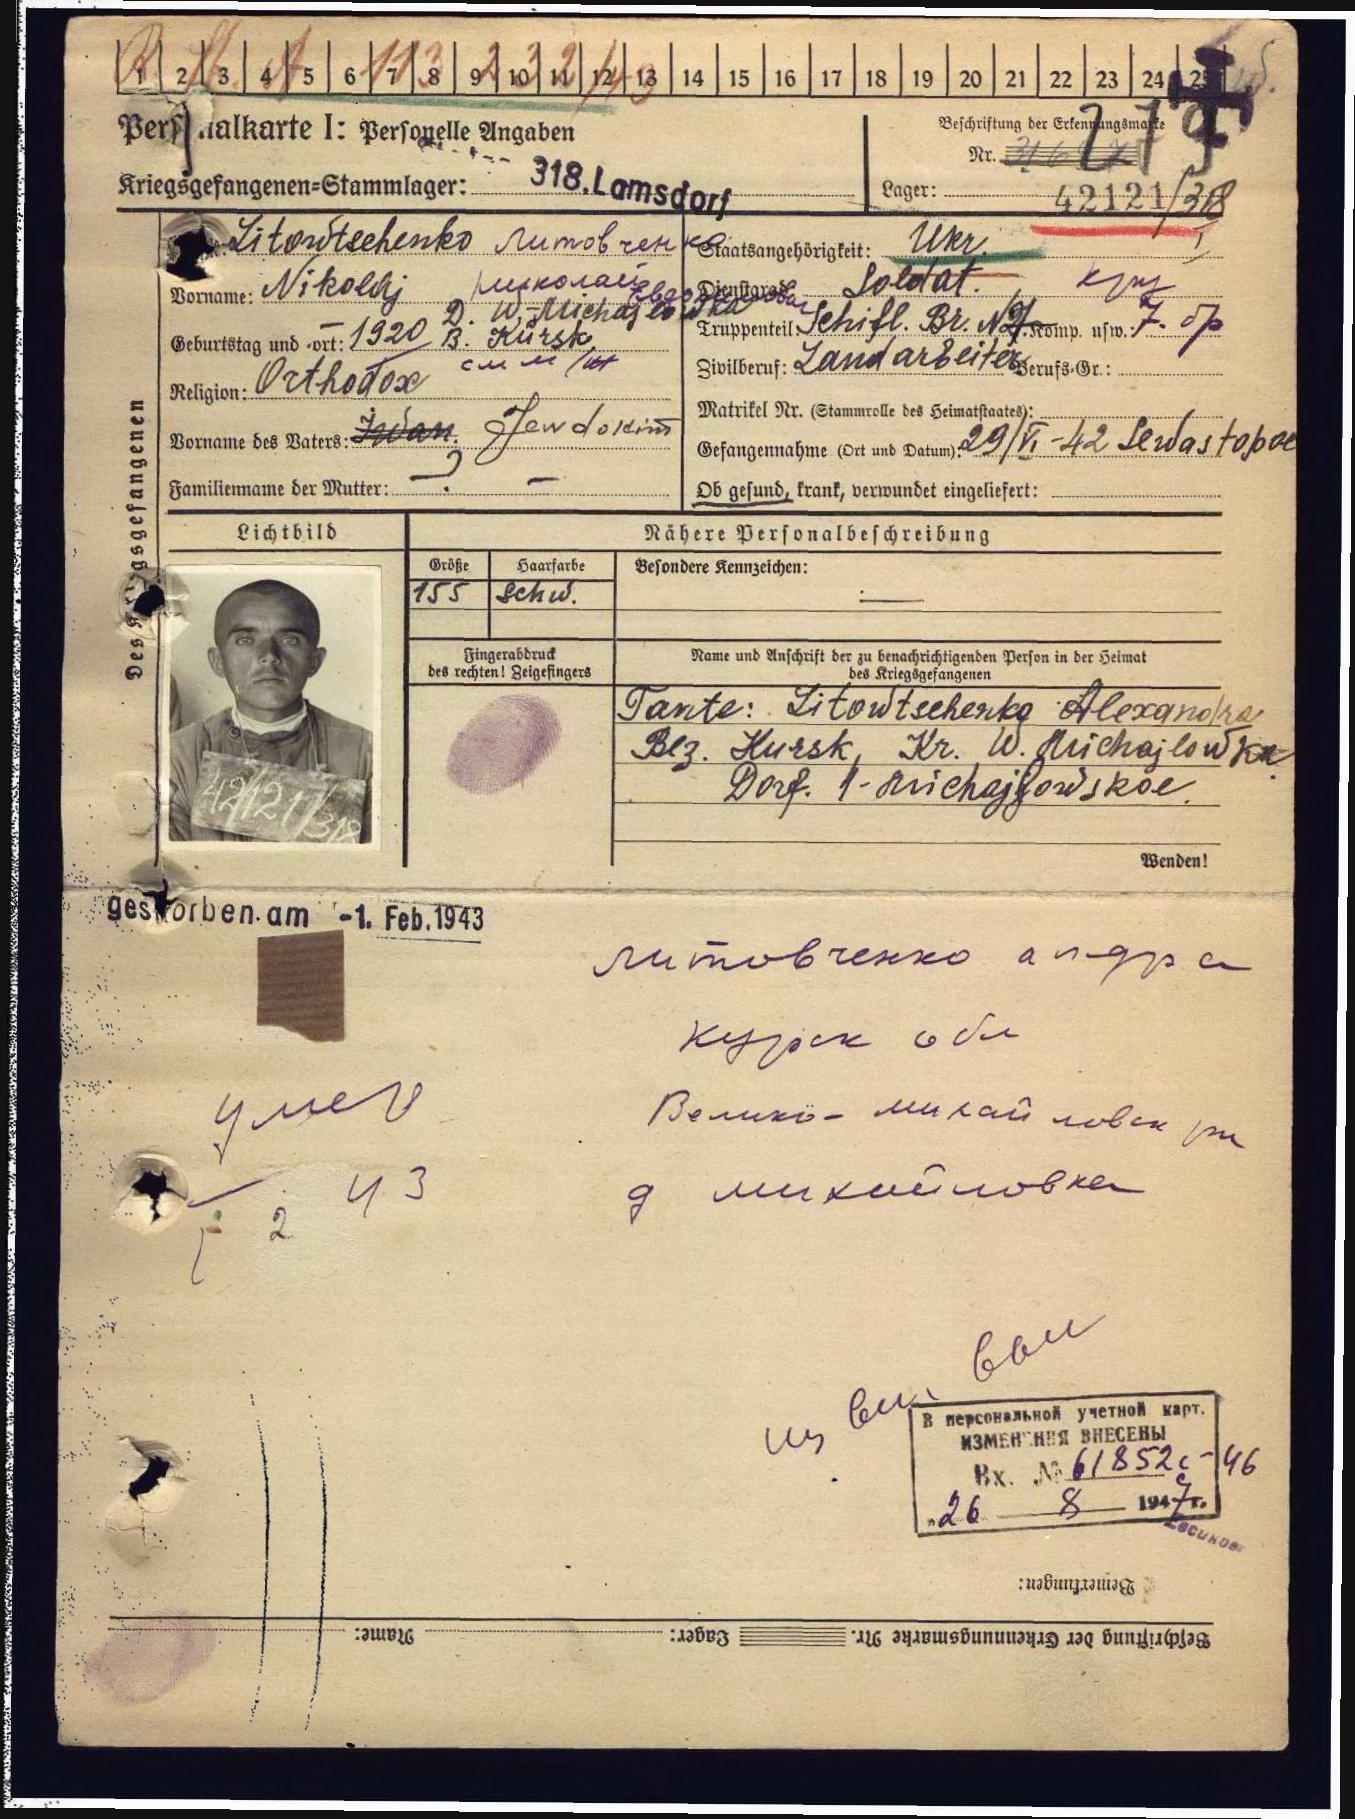 1 2 3 4 5 6 7 8 9 10 11 12 13 14 15 16 17 18 19 20 21 22 23 24 25
Personalkarte I: Personelle Angaben
Beschriftung der Erkennungsmarke
Nr.
Kriegsgefangenen-Stammlager: 318. Lamsdorf
Lager: 42121/318
Des Kriegsgefangenen
Litowtschenko Литовченко
Vorname: Nikolaj Николай
Geburtstag und -ort: 1920 D. W.-Michajlowka
B. Kursk
Religion: Orthodox
Vorname des Vaters: Iwan. Jewdokim
Familienname der Mutter: ? –
Staatsangehörigkeit: Ukr.
Dienstgrad: Soldat.
Truppenteil: Schifl. Br. N Komp. usw.: 7.
Zivilberuf: Landarbeiter Berufs-Gr.:
Matrikel Nr. (Stammrolle des Heimatstaates):
Gefangennahme (Ort und Datum): 29/VI-42 Sewastopol
Ob gesund, krank, verwundet eingeliefert:
Lichtbild
Nähere Personalbeschreibung
Größe Haarfarbe Besondere Kennzeichen:
155 schw. —
42121/318
Fingerabdruck
des rechten! Zeigefingers
Name und Anschrift der zu benachrichtigenden Person in der Heimat
des Kriegsgefangenen
Tante: Litowtschenko Alexandra
Bez. Kursk, Kr. W. Michajlowka
Dorf. Michajlowskoe.
Wenden!
gestorben am -1. Feb. 1943
Литовченко
Курск обл
Велико-михайловск рн
д михайловка
умер
2 43
В персональной учетной карт.
ИЗМЕНЕНИЯ ВНЕСЕНЫ
Вх. № 61852с-46
"26 8 1947г.
Bemerkungen:
Beschriftung der Erkennungsmarke Nr. Lager: Name: